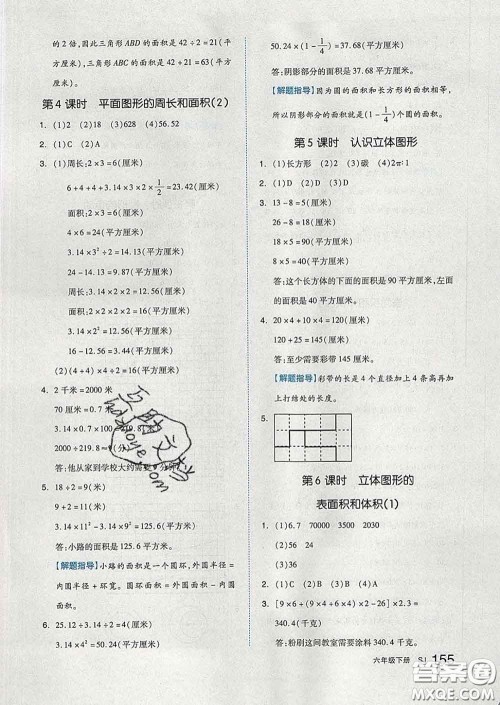 的2倍，因此三角形ABD的面积是42÷2=21(平方厘
米)，三角形ABC的面积是42+21=63(平方厘米)。
第4课时 平面图形的周长和面积(2)
1. (1)2 (2)18 (3)628 (4)56.52
2. (1)C (2)A
3. (1)周长：2×3=6(厘米)
6+4+4+3.14×2×3×1/2=23.42(厘米)
面积：2×2=4(厘米)
4×6=24(平方厘米)
3.14×3²÷2=14.13(平方厘米)
24-14.13=9.87(平方厘米)
周长：3.14×2×2=12.56(厘米)
面积：2×2=4(厘米)
4×4=16(平方厘米)
3.14×2²=12.56(平方厘米)
16-12.56=3.44(平方厘米)
(2)(2+4)×2÷2=6(平方厘米)
4. 2千米=2000米
70厘米=0.7米
3.14×0.7×100=219.8(米)
2000÷219.8≈9(分)
答：他从家到学校大约需要9分钟。
5. 18÷2=9(米)
9+2=11(米)
3.14×11²-3.14×9²=125.6(平方米)
答：小路的面积是125.6平方米。
【解题指导】小路的面积是一个圆环，外圆半径=
内圆半径+环宽。圆环面积=外圆面积-内圆
面积。
6. 25.12÷3.14÷2=4(厘米)
3.14×4²=50.24(平方厘米)
50.24×(1-1/4)=37.68(平方厘米)
答：阴影部分的面积是37.68平方厘米。
【解题指导】因为圆的面积和长方形的面积相等，
所以阴影部分的面积是(1-1/4)个圆的面积。
第5课时 认识立体图形
1. (1)长方形 (2)3 (3)碳 (4)2π∶1
2. (1)D (2)D (3)D
3. 13-8=5(厘米)
18×5=90(平方厘米)
13-5=8(厘米)
8×5=40(平方厘米)
答：这个长方体的下面的面积是90平方厘米，左面
的面积是40平方厘米。
4. 20×4+10×4=120(厘米)
120+25=145(厘米)
答：至少需要彩带145厘米。
【解题指导】彩带的长是4个直径加上4条高再加
上打结处的长度。
5.
第6课时 立体图形的
表面积和体积(1)
1. (1)6.7 70000 3500 2030
(2)56 24
(3)36
2. (1)C (2)A (3)B (4)A
3. [9×6+(9×4+6×4)×2-26]×4×0.5=
340.4(千克)
答：粉刷这间教室需要涂料340.4千克。
六年级下册 SJ 155
答案圈
MXQE.COM